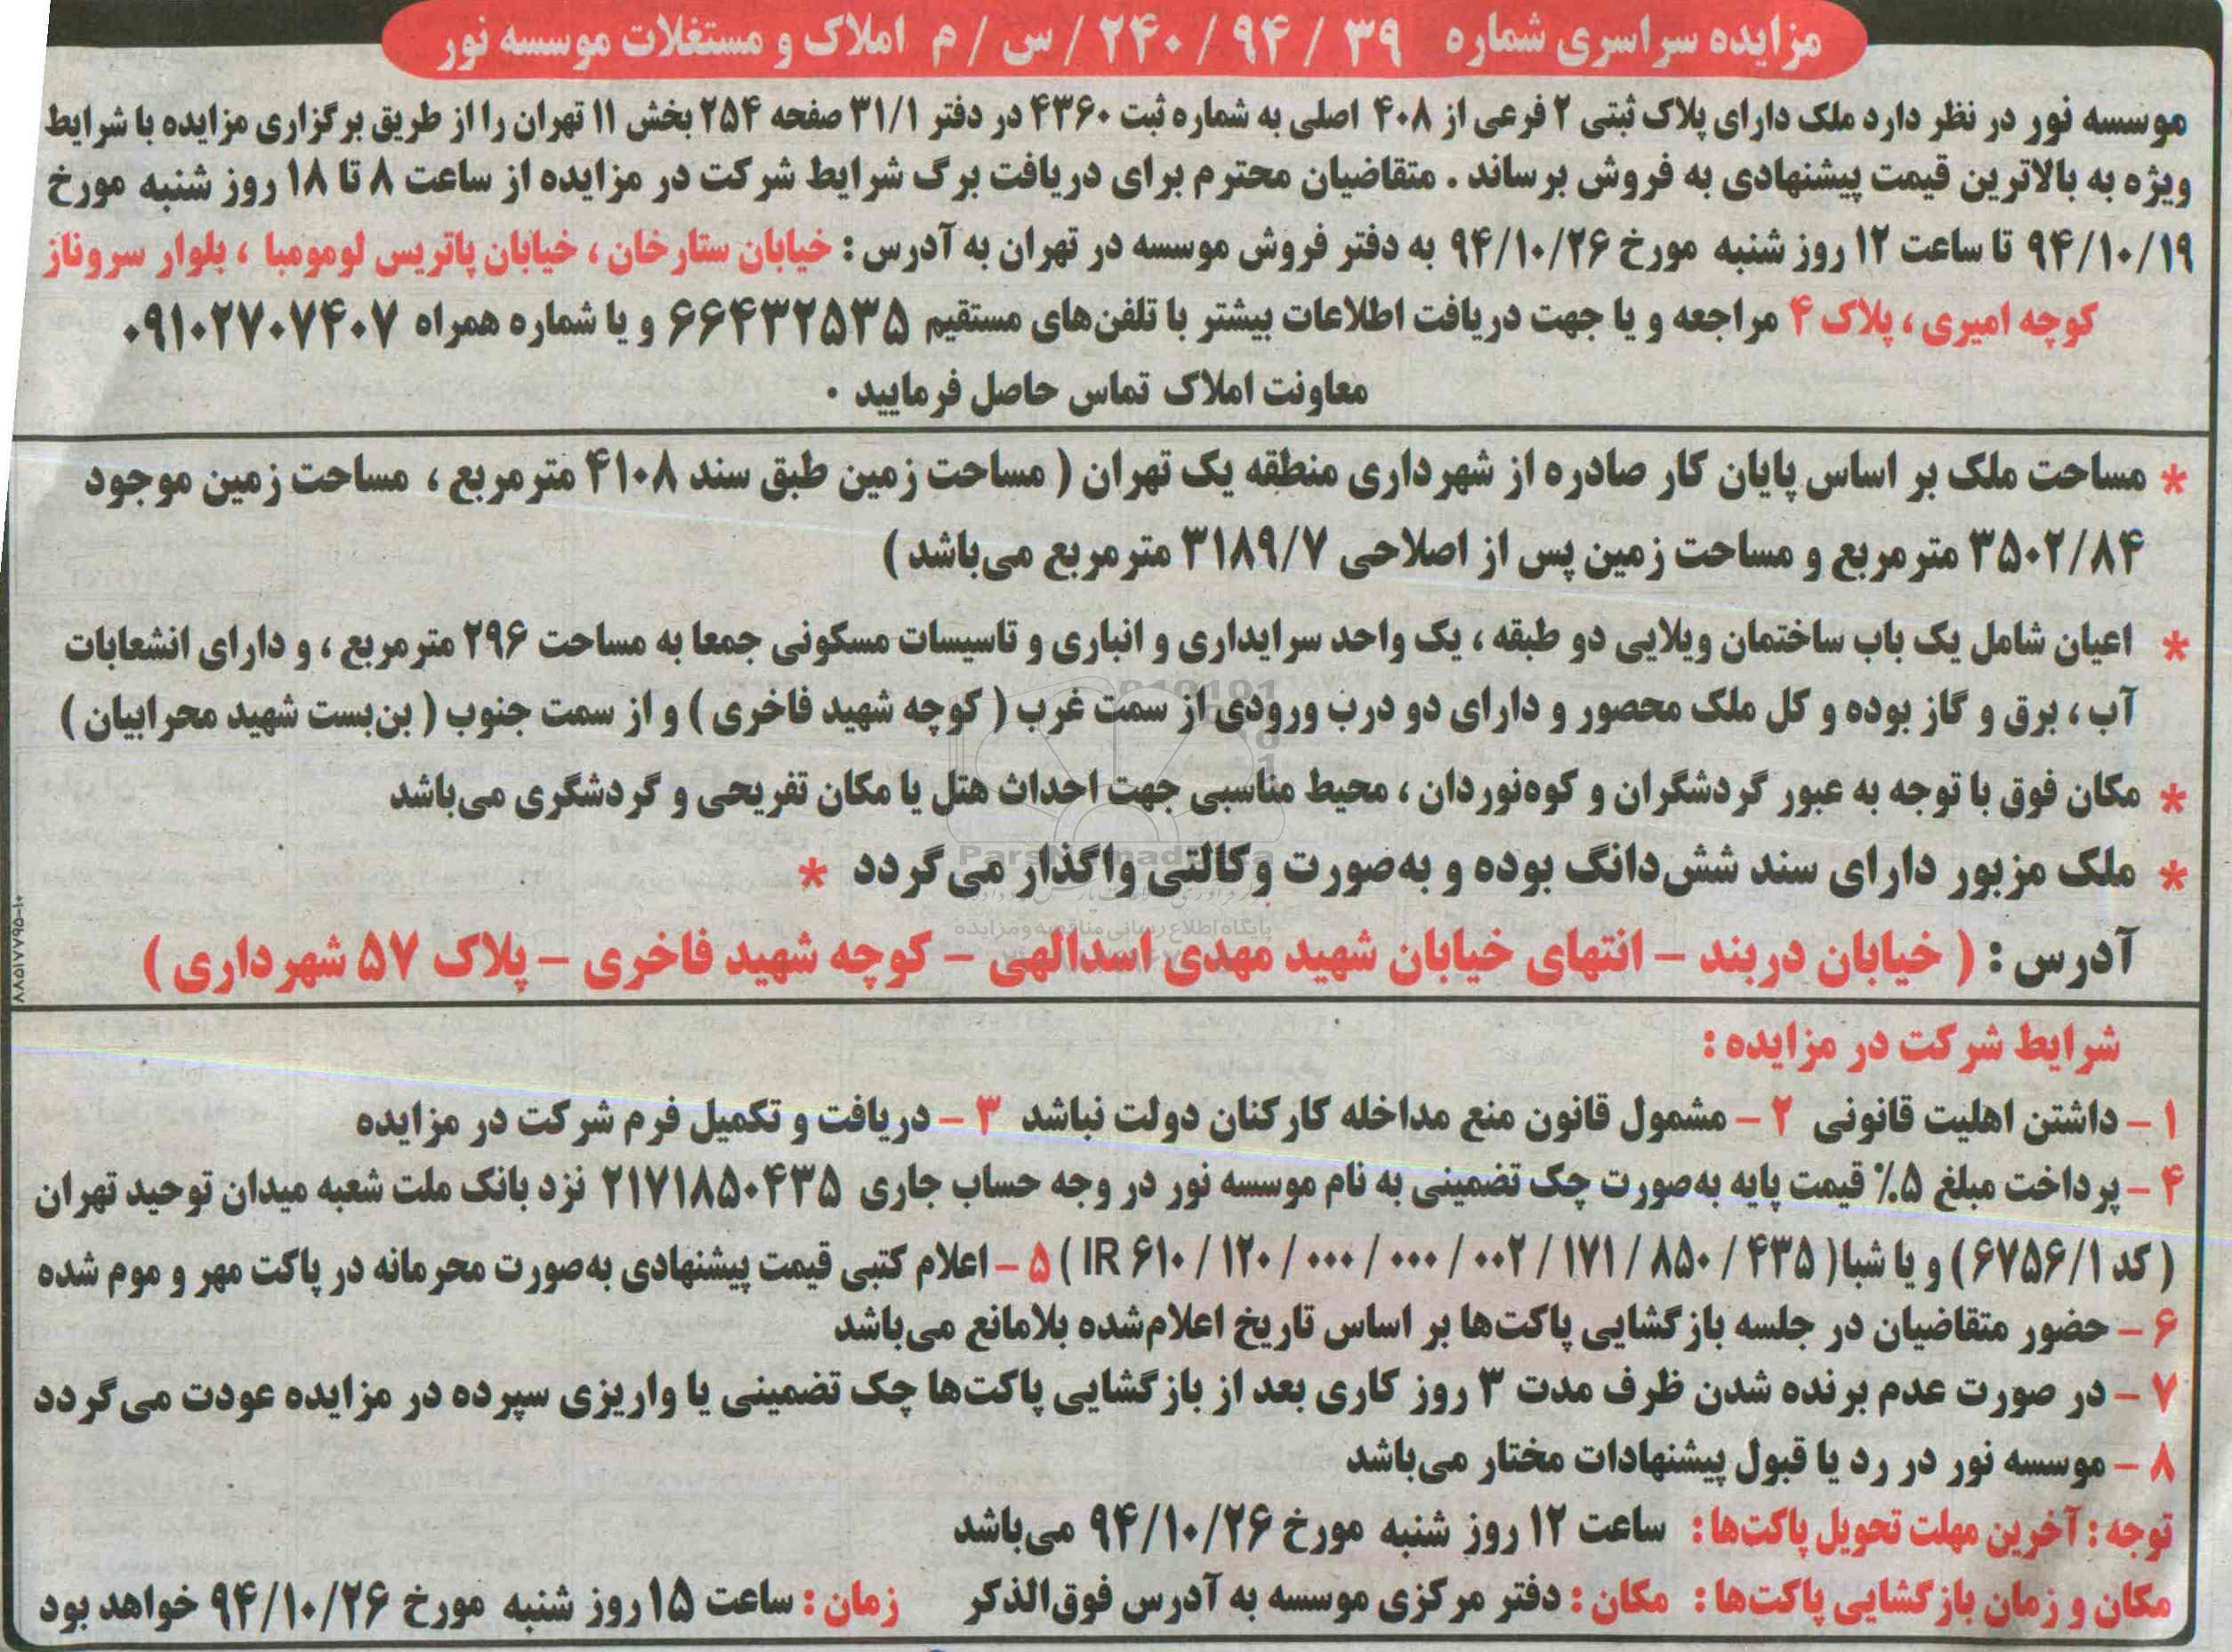 مزایده سراسری شماره ۳۹ / ۹۴ / ۲۴۰ / س / م املاک و مستغلات موسسه نور
موسسه نور در نظر دارد ملک دارای پلاک ثبتی ۲ فرعی از ۴۰۸ اصلی به شماره ثبت ۴۳۶۰ در دفتر ۳۱/۱ صفحه ۲۵۴ بخش ۱۱ تهران را از طریق برگزاری مزایده با شرایط
ویژه به بالاترین قیمت پیشنهادی به فروش برساند . متقاضیان محترم برای دریافت برگ شرایط شرکت در مزایده از ساعت ۸ تا ۱۸ روز شنبه مورخ
۹۴/۱۰/۱۹ تا ساعت ۱۲ روز شنبه مورخ ۹۴/۱۰/۲۶ به دفتر فروش موسسه در تهران به آدرس : خیابان ستارخان ، خیابان پاتریس لومومبا ، بلوار سروناز
کوچه امیری ، پلاک ۴ مراجعه و یا جهت دریافت اطلاعات بیشتر با تلفن‌های مستقیم ۶۶۴۳۲۵۳۵ و یا شماره همراه ۰۹۱۰۲۷۰۷۴۰۷
معاونت املاک تماس حاصل فرمایید .
* مساحت ملک بر اساس پایان کار صادره از شهرداری منطقه یک تهران ( مساحت زمین طبق سند ۴۱۰۸ مترمربع ، مساحت زمین موجود
۳۵۰۲/۸۴ مترمربع و مساحت زمین پس از اصلاحی ۳۱۸۹/۷ مترمربع می‌باشد )
* اعیان شامل یک باب ساختمان ویلایی دو طبقه ، یک واحد سرایداری و انباری و تاسیسات مسکونی جمعا به مساحت ۲۹۶ مترمربع ، و دارای انشعابات
آب ، برق و گاز بوده و کل ملک محصور و دارای دو درب ورودی از سمت غرب ( کوچه شهید فاخری ) و از سمت جنوب ( بن‌بست شهید محرابیان )
* مکان فوق با توجه به عبور گردشگران و کوه‌نوردان ، محیط مناسبی جهت احداث هتل یا مکان تفریحی و گردشگری می‌باشد
* ملک مزبور دارای سند شش‌دانگ بوده و به‌صورت وکالتی واگذار می‌گردد *
پایگاه اطلاع رسانی مناقصه و مزایده
آدرس : ( خیابان دربند – انتهای خیابان شهید مهدی اسدالهی – کوچه شهید فاخری – پلاک ۵۷ شهرداری )
شرایط شرکت در مزایده :
۱ – داشتن اهلیت قانونی ۲ – مشمول قانون منع مداخله کارکنان دولت نباشد ۳ – دریافت و تکمیل فرم شرکت در مزایده
۴ – پرداخت مبلغ ۵٪ قیمت پایه به‌صورت چک تضمینی به نام موسسه نور در وجه حساب جاری ۲۱۷۱۸۵۰۴۳۵ نزد بانک ملت شعبه میدان توحید تهران
( کد ۶۷۵۶/۱ ) و یا شبا( IR ۶۱۰ / ۱۲۰ / ۰۰۰ / ۰۰۰ / ۰۰۲ / ۱۷۱ / ۸۵۰ / ۴۳۵ ) ۵ – اعلام کتبی قیمت پیشنهادی به‌صورت محرمانه در پاکت مهر و موم شده
۶ – حضور متقاضیان در جلسه بازگشایی پاکت‌ها بر اساس تاریخ اعلام‌شده بلامانع می‌باشد
۷ – در صورت عدم برنده شدن ظرف مدت ۳ روز کاری بعد از بازگشایی پاکت‌ها چک تضمینی یا واریزی سپرده در مزایده عودت می‌گردد
۸ – موسسه نور در رد یا قبول پیشنهادات مختار می‌باشد
توجه : آخرین مهلت تحویل پاکت‌ها : ساعت ۱۲ روز شنبه مورخ ۹۴/۱۰/۲۶ می‌باشد
مکان و زمان بازگشایی پاکت‌ها : مکان : دفتر مرکزی موسسه به آدرس فوق‌الذکر زمان : ساعت ۱۵ روز شنبه مورخ ۹۴/۱۰/۲۶ خواهد بود